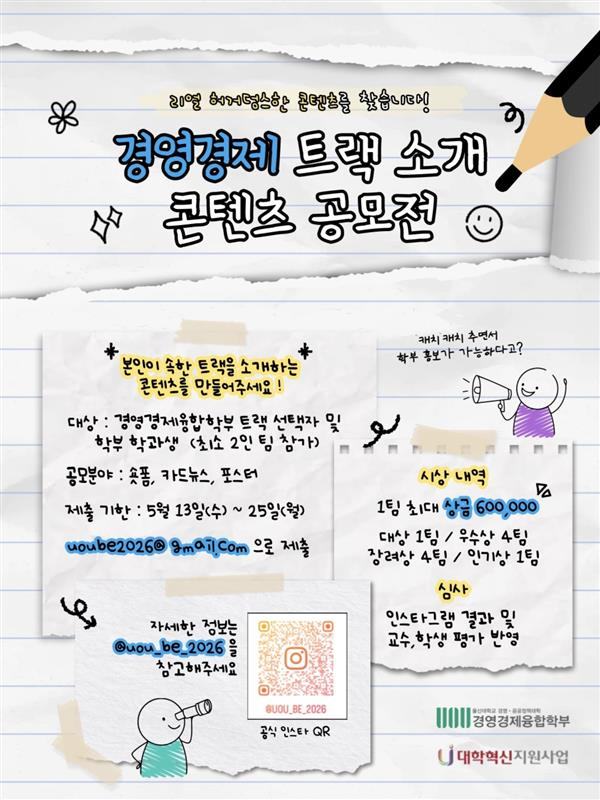 리얼 허거덩스한 콘텐츠를 찾습니다!
경영경제 트랙 소개
콘텐츠 공모전
캐치 캐치 추면서
학부 홍보가 가능하다고?
본인이 속한 트랙을 소개하는
콘텐츠를 만들어주세요!
대상 : 경영경제융합학부 트랙 선택자 및
학부 학과생 (최소 2인 팀 참가)
공모분야 : 숏폼, 카드뉴스, 포스터
제출 기한 : 5월 13일(수) ~ 25일(월)
uoube2026@gmail.com 으로 제출
시상 내역
1팀 최대 상금 600,000
대상 1팀 / 우수상 4팀
장려상 4팀 / 인기상 1팀
심사
인스타그램 결과 및
교수,학생 평가 반영
자세한 정보는
@uou_be_2026 을
참고해주세요
@UOU_BE_2026
공식 인스타 QR
울산대학교 경영·공공정책대학
UOU 경영경제융합학부
대학혁신지원사업